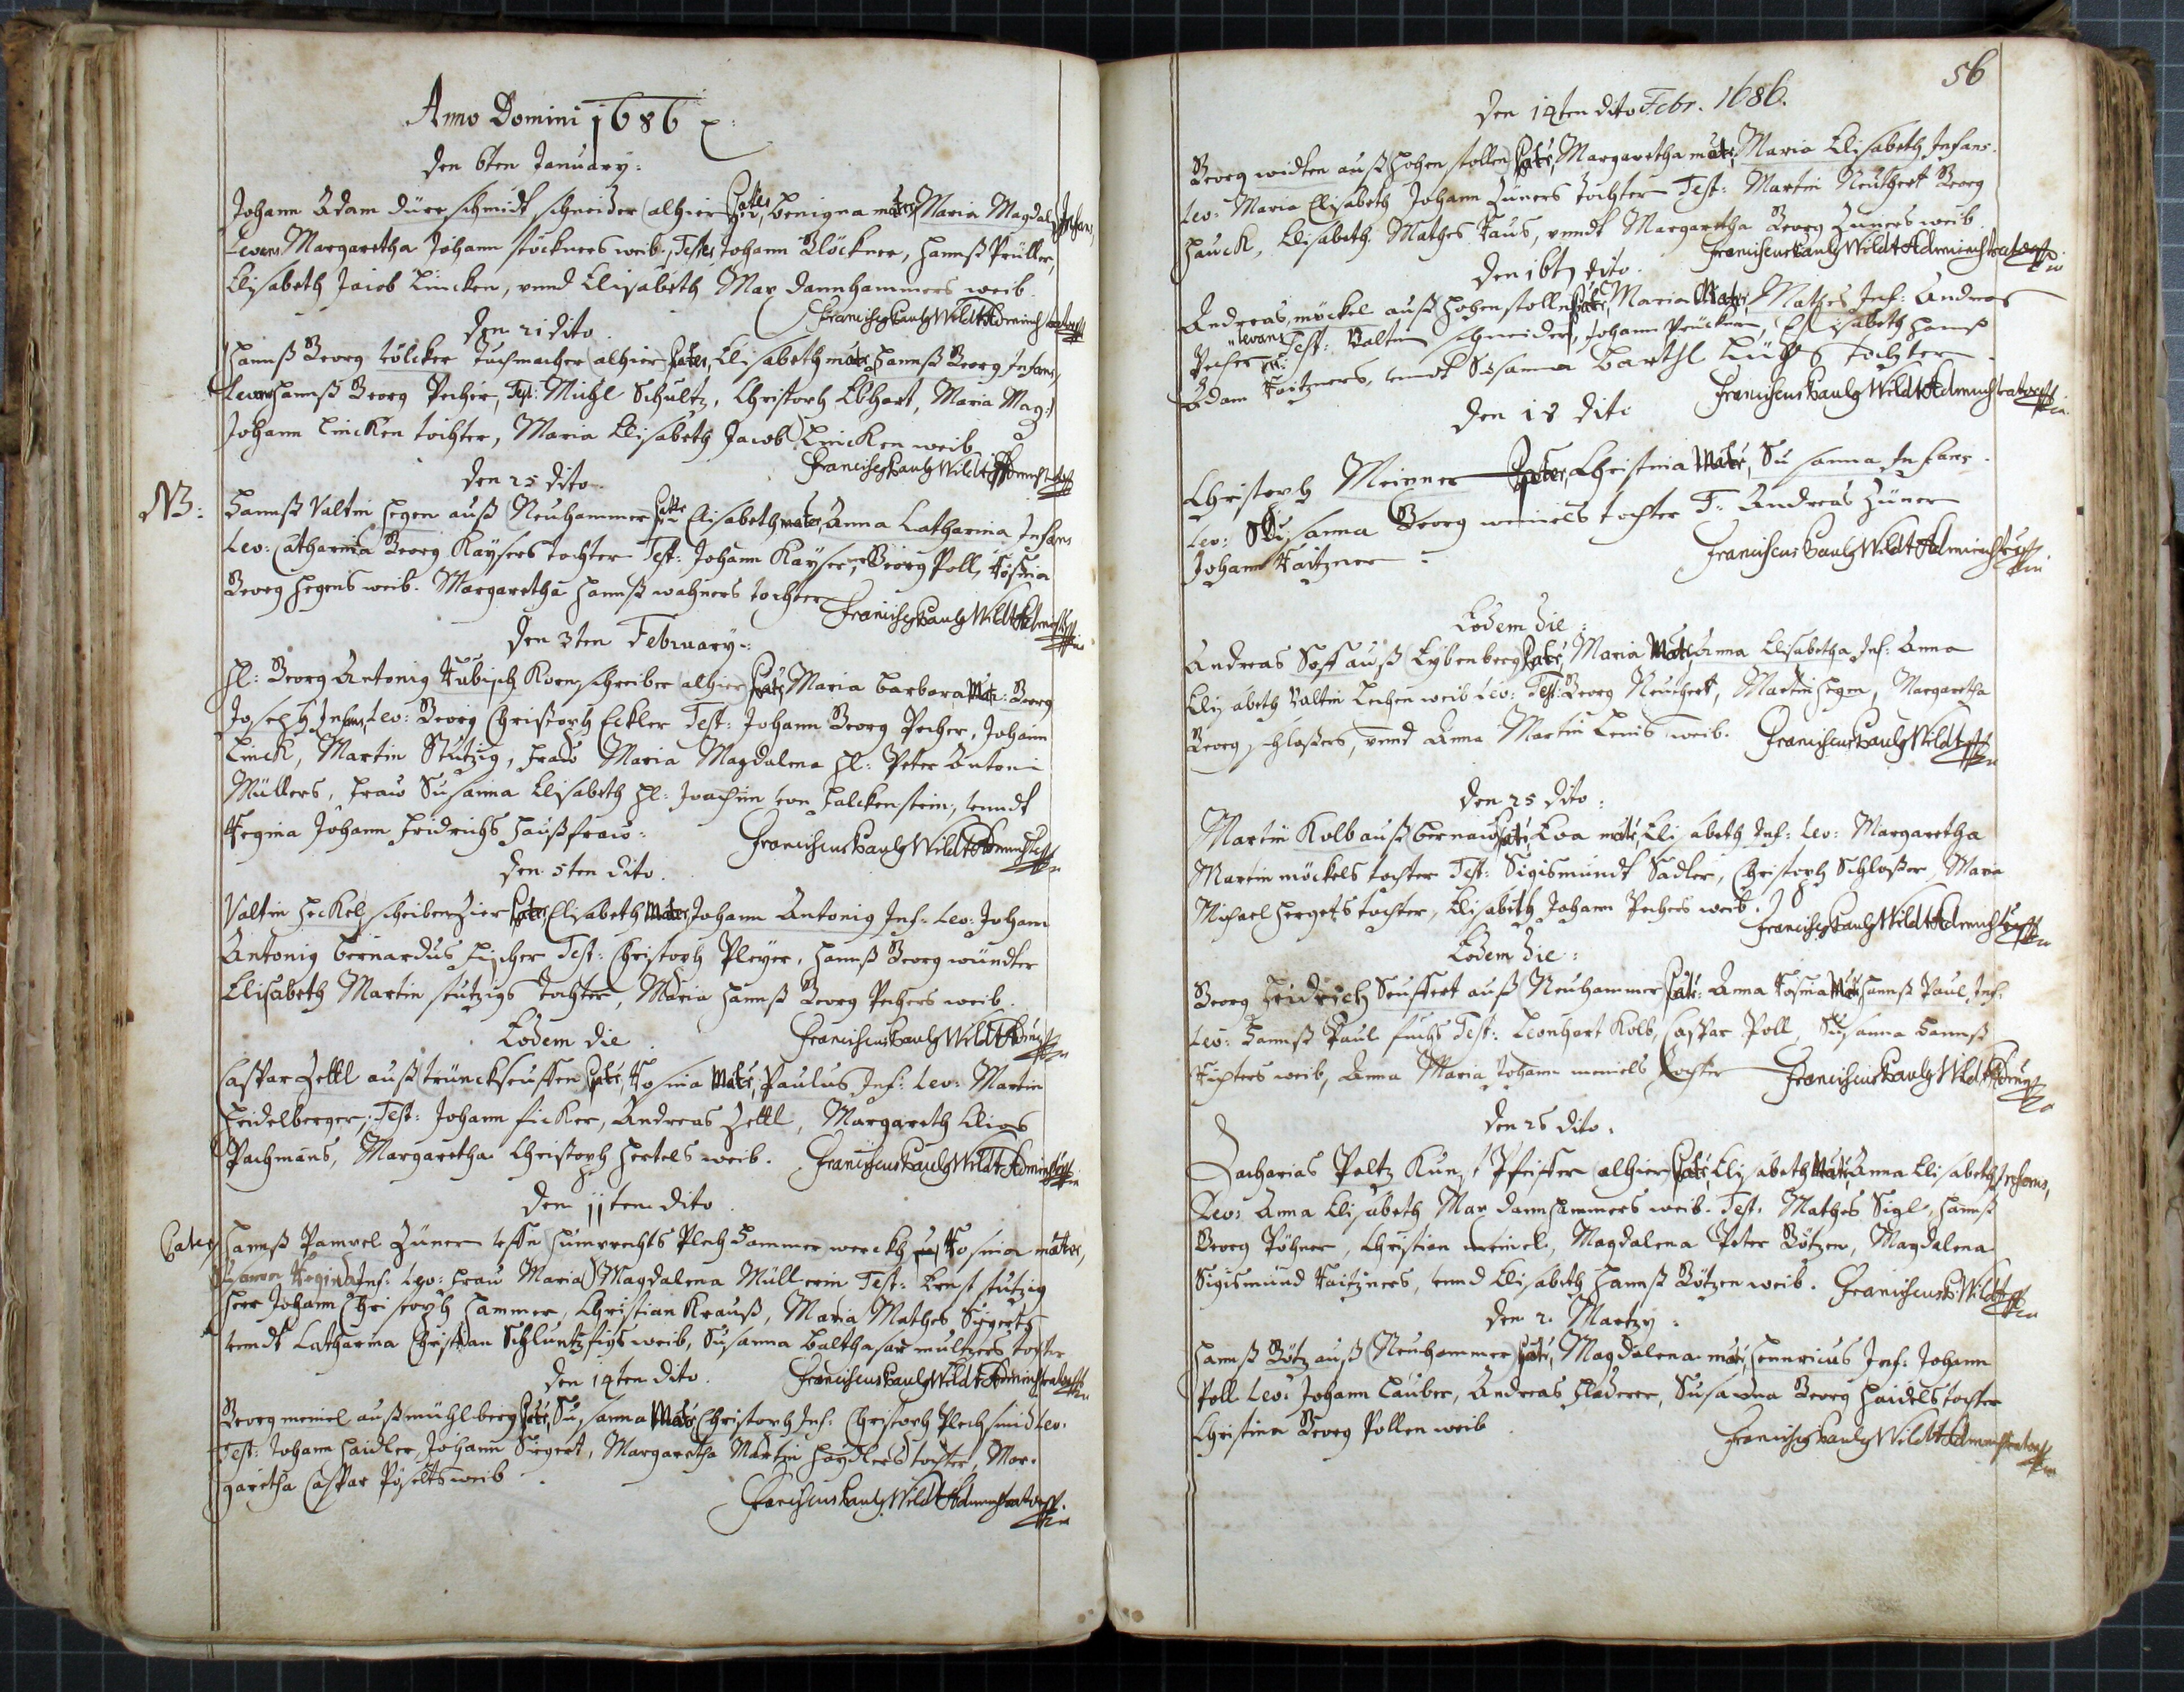 Anno Domini 1686
den 6ten January:
Johann Adam dürrschmidt schneider alhier Pater, Benigna mater, Maria Magdal: Infans,
Levans Margaretha Johann stöckners weib, Testes Johann Glöckner, Hannß Prüller,
Elisabeth Jacob Lincken, vnnd Elisabeth Max dannhammers weib.
Franciscus Pauly Wildt Administrator
den 21 dito
Hannß Georg Völcker Tuchmacher alhier Pater, Elisabeth mater, Hannß Georg Infans,
Levans Hannß Georg Pecher, Test: Michl Schultz, Christoph Ebhart, Maria Mag:
Johann Lincken tochter, Maria Elisabeth Jacob Lincken weib
Franciscus Pauly Wildt
den 25 dito
NB: Hannß Valtin Hegen auß Neuhammer Pater Elisabeth mater, Anna Catharina Infans
Lev: Catharina Georg Kaysers tochter Test: Johann Kayser, Georg Poll, Rosina
Georg Hegens weib. Margaretha Hannß wahners tochter
Franciscus Pauly Wildt
den 3ten February:
Hl: Georg Antonig Kubisch Kornschreiber alhier Pater, Maria Barbara Mat: Georg
Joseph Infans, Lev: Georg Christoph Eckler Test: Johann Georg Pecher, Johann
Linck, Martin Stutzig, Fraw Maria Magdalena Hl: Peter Antoni
Müllers, Fraw Susanna Elisabeth Hl: Joachim von Falckenstein, vnndt
Regina Johann Fridrichs Haußfraw:
Franciscus Pauly Wildt
den 5ten dito.
Valtin Heckel Pater, Elisabeth Mater, Johann Antonig Inf: Lev: Johann
Antonig Bernardus Fischer Test: Christoph Pleyer, Hannß Georg wündter
Elisabeth Martin stutzigs Tochter, Maria Hannß Georg Pechers weib.
Eodem die
Franciscus Pauly Wildt
Caspar Zettl auß trünckseuffen Pater, Rosina Mater, Paulus Inf: Lev: Martin
Heidelberger, Test: Johann ficker, Andreas Zettl, Margareth Elias
Pachmans, Margaretha Christoph Hertels weib.
Franciscus Pauly Wildt
den 11ten dito
Pater Hannß Samuel Züner Plech Hammer werckh Rosina mater,
Susanna Regina Inf: Lev: Frau Maria Magdalena Müllerin Test: Ernst stutzig
Herr Johann Christoph Hammer, Christian Krauß, Maria Mathes Siegerts
vnndt Catharina Christian Schluntzfigs weib, Susanna Balthasar multzers tochter
den 14ten dito.
Franciscus Pauly Wildt Administrator
Georg meinel auß mühlberg Pater, Susanna Mater Christoph Inf: Christoph Plechsmid Lev:
Test: Johann Haidler, Johann Siegert, Margaretha Martin Haydlers tochter, Mar-
garetha Caspar Püselts weib
Franciscus Pauly Wildt Administrator
56
den 14ten dito Febr. 1686.
Georg widten auß Hohen stollen Pater, Margaretha mater, Maria Elisabeth Infans.
Lev: Maria Elisabeth Johann Züners tochter Test: Martin Neuthert Georg
Hauck, Elisabeth Mathes Taus, vnndt Margaretha Georg Züners weib
Franciscus Pauly Wildt Administrator
den 16 dito.
Andreas möckel auß Hohenstollen Pater, Maria Mater, Mathes Inf: Andreas
Pecher levans Test: Valtin schneider, Johann Prückner, Elisabeth Hannß
Adam Raitzners, vnndt Susanna Barthl Tochter
den 18 dito
Franciscus Pauly Wildt Administrator
Christoph Meinner Pater, Christina Mater, Susanna Infans.
Lev: Susanna Georg meinels tochter T: Andreas Züner
Johann Raitzner
Franciscus Pauly Wildt
Eodem die:
Andreas Soff auß Eybenberg Pater, Maria Mater, Anna Elisabetha Inf: Anna
Elisabeth Valtin weib Lev: Test: Georg Neuthert, Martin Hegen, Margaretha
Georg schlossers, vnnd Anna Martin weib.
Franciscus Pauly Wildt
den 25 dito:
Martin Kolb auß Bernau Pater, Eva mater, Elisabeth Inf: Lev: Margaretha
Martin möckels tochter Test: Sigismundt Sadler, Christoph Schlosser, Maria
Michael Hergets tochter, Elisabeth Johann Pechers weib.
Franciscus Pauly Wildt
Eodem die:
Georg Heidrich Seuffert auß Neuhammer Pater: Anna Rosina Mater, Hannß Paul, Inf:
Lev: Hannß Paul fuchs Test: Leonhart Kolb, Caspar Poll, Susanna Hannß
Richters weib, Anna Maria Johann meinels Tochter
Franciscus Pauly Wildt
den 28 dito:
Zacharias Peltz Kunst Pfeiffer alhier Pater, Elisabeth Mater, Anna Elisabeth Infans,
Lev: Anna Elisabeth Max dannhammers weib. Test: Mathes Sigl, Hannß
Georg Pöhner, Christian meinel, Magdalena Peter Götzen, Magdalena
Sigismund Raitzners, vnnd Elisabeth Hannß Götzen weib.
Franciscus P. Wildt
den 2. Martzy:
Hannß Götz auß Neuhammer Pater, Magdalena mater, Henricus Inf: Johann
Poll Lev: Johann Tauber, Andreas Haderer, Susanna Georg Haidels tochter
Christina Georg Pollen weib
Franciscus Pauly Wildt Administrator